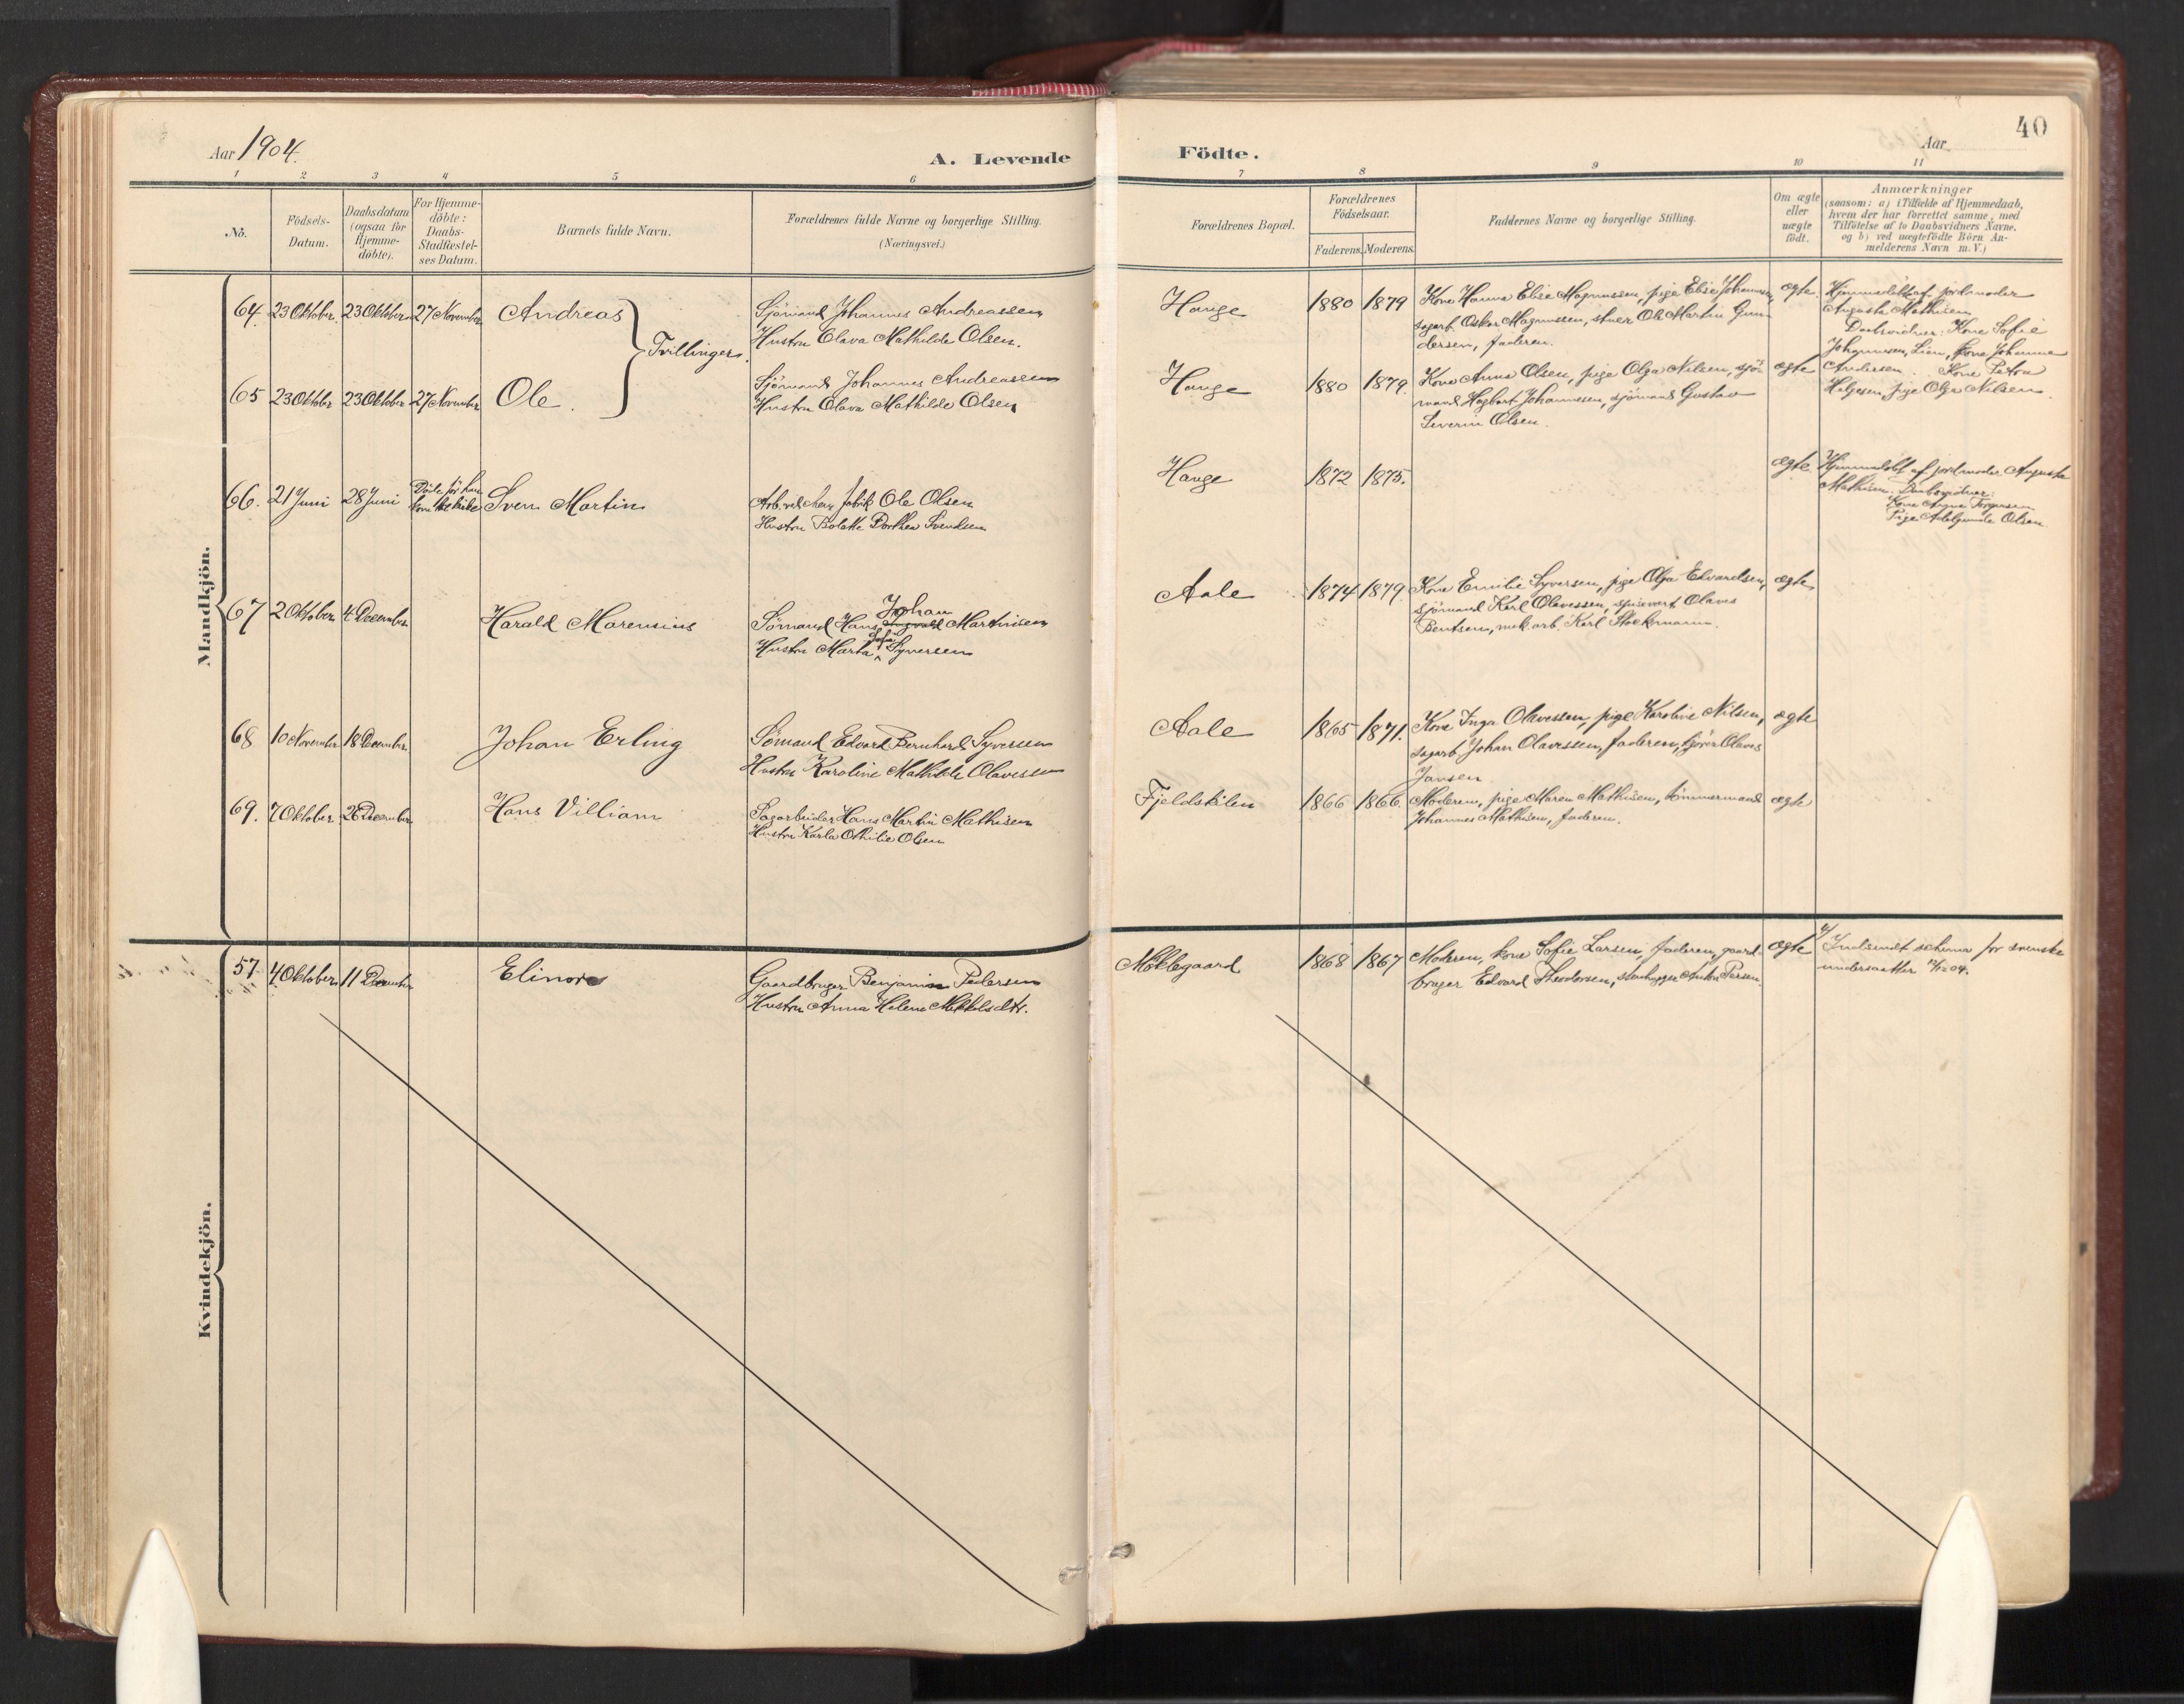 Aar 1904.
A. Levende
1 2 3 4 5 6
No.
Födsels-
Datum.
Daabsdatum
(ogsaa for
Hjemme-
döbte).
For Hjemme-
döbte:
Daabs-
Stadfæstel-
ses Datum.
Barnets fulde Navn.
Forældrenes fulde Navne og borgerlige Stilling.
(Næringsvei.)
Mandkjön.
64. 23 Oktober. 23 Oktober 27 November Andreas
Tvillinger.
Sjömand Johannes Andreassen
Hustru Olava Mathilde Olsen.
65 23 Oktober 23 Oktober 27 November Ole.
Sjömand Johannes Andreassen
Hustru Olava Mathilde Olsen
66. 21 Juni 28 Juni
Döde för han
kom til kirke
Sven Martin
Arb. ved chem. fabrik Ole Olsen
Hustru Bolette Dorthea Svendsen
67 2 Oktober 4 December Harald Marensius
Johan
Sömand Hans Ingvald Martinisen
Sofie
Hustru Marta Syversen
68 10 November 18 December. Johan Erling
Sömand Edvard Bernhard Syversen
Hustru Karoline Mathilde Olavessen
69. 7 Oktober 26 December Hans Villiam
Sagarbeider Hans Martin Mathisen
Hustru Karla Othilie Olsen
Kvindekjön.
57 4 Oktober 11 December Elinore
Gaardbruger Benjamin Pedersen
Hustru Anna Helene Mikkelsdtr.
40
Födte.
Aar
7 8 9 10 11
Forældrenes Bopæl.
Forældrenes
Födselsaar.
Faderens. Moderens.
Faddernes Navne og borgerlige Stilling.
Om ægte
eller
uægte
födt.
Anmærkninger
(saasom: a) i Tilfælde af Hjemmedaab,
hvem der har forrettet samme, med
Tilföielse af to Daabsvidners Navne.
og b) ved uægtefödte Börn An-
melderens Navn m. V.)
Hauge 1880 1879
Kone Hanna Elise Magnussen, pige Elise Johannesen,
sagarb. Oskar Magnussen, stuer Ole Martin Gun-
dersen, faderen.
ægte.
Hjemmedöbt af jordmoder
Augusta Mathisen
Daabsvidner: Kone Sofie
Johannesen, Lien, Kone Johanne
Andersen. Kone Petra
Helgesen pige Olga Nilsen.
Hauge 1880 1879.
Kone Anna Olsen, pige Olga Nilsen, sjö-
mand Hagbart Johannesen, sjömand Gustav
Severin Olsen.
ægte
Hauge 1872 1875. ægte
Hjemmedöbt af jordmoder Augusta
Mathisen. Daabsvidner:
Kone Agne Torgersen
Pige Adelgunde Olsen.
Aale 1874 1879.
Kone Emilie Syversen, pige Olga Edvardsen,
sjömand Karl Olavessen, spisevert Olaves
Bentsen, mek. arb. Karl Stockmann.
ægte
Aale 1865 1871.
Kone Inga Olavessen, pige Karoline Nilsen,
sagarb. Johan Olavessen, faderen, kjörer Olaves
Jansen
ægte
Fjeldskilen 1866 1866
Moderen, pige Maren Mathisen, tömmermand
Johannes Mathisen, faderen.
ægte
Möklegaard 1868 1867
Moderen, kone Sofie Larsen, faderen, gaard-
bruger Edvard Theodorsen, stenhugger Anton Persen.
ægte
Indsendt schema for svenske
undersaatter 12/12 04.